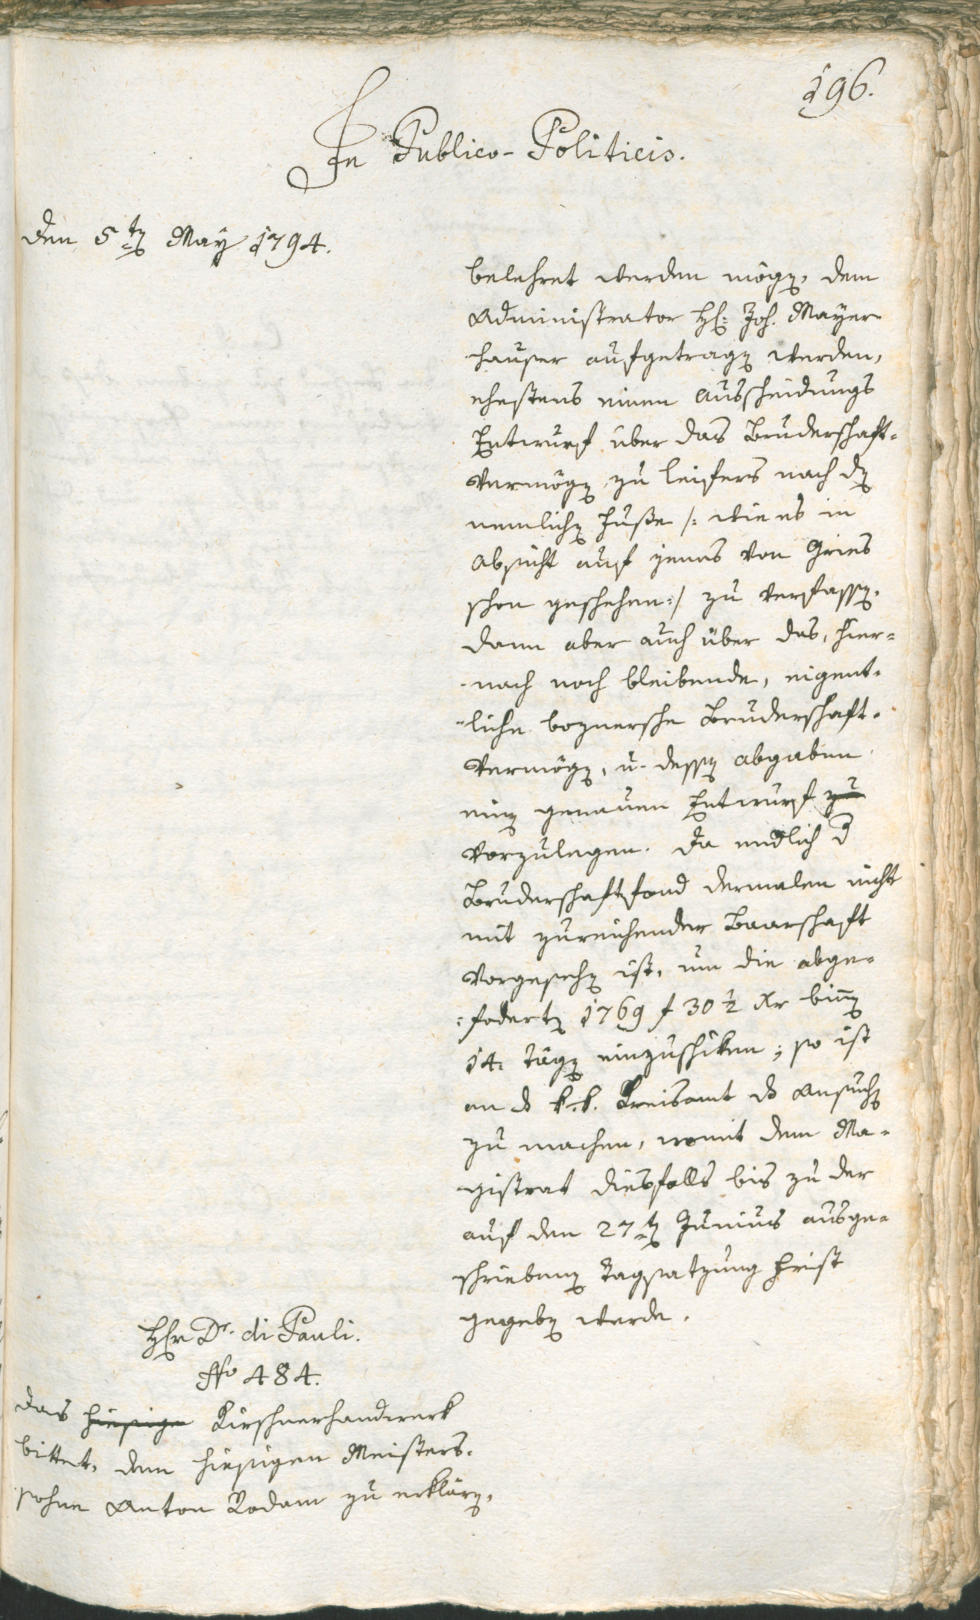 196.
In Publico-Politicis.
den 5ten May 1794.
belehret werden mögen, dem
Administrator H: Joh. Mayer-
hauser aufgetragen werden,
ehestens einen Ausscheidungs
Entwurf über das Bruderschaft-
Vermögen zu leifers nach den
nemlichen Fuße /: wie es in
Absicht auf jenes von Gries
schon geschehen :/ zu verfassen,
dann aber auch über das, hier-
-nach noch bleibende, eigent-
-liche boznersche Bruderschaft-
Vermögen, u. dessen abgaben
einen genauen Entwurf zu
vorzulegen. Da endlich der
Bruderschaftsfond dermalen nicht
mit zureichender Baarschaft
vorgesehen ist, um die abge-
foderten 1769 f 30 1/2 xr binnen
14. Tägen einzuschiken; so ist
an das k. k. Kreisamt das Ansuchen
zu machen, womit dem Ma-
gistrat diesfalls bis zu der
auf den 27ten Junius ausge-
schriebenen Tagsatzung Frist
gegeben werde.
Hr Dr. di Pauli.
No 484.
Das hiesige Kirschnerhandwerk
bittet, den hiesigen Meisters-
sohne Anton Rodam zu erklären,